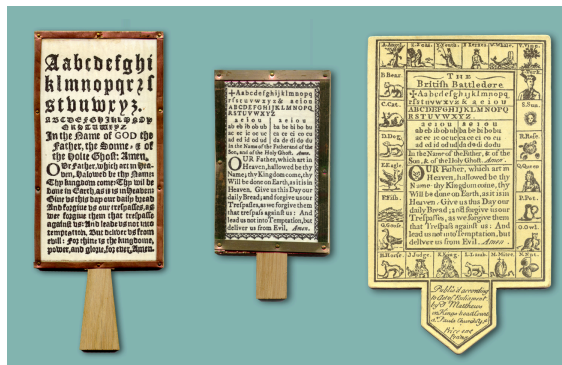 Aabcdefghi
klmnopqrſ
stbnwxyz.
In the Name of GOD the
Father, the Sonne, & of
the Holie Ghost: Amen.
OUr Father, which art in Hea-
ven, Halowed be thy Name:
Thy kingdome come: Thy wil be
done in Earth, as it is in Heaven
Giue vs this day our daily bread
And forgive vs our trespasses, as
wee forgive them that trespasse
against vs: And leade vs not into
temptation, But deliver vs from
evill: For thine is the kingdome,
power, and glorie, for ever, Amen.
✠Aabcdefghijklmnopq
rſstuvwxyz& aeiou
ABCDEFGHIJKLMNOPQ
RSTUVWXYZ.
a e i o u
a e i o u
ab eb ib ob ub
ba be bi bo bu
ac ec ic oc uc
ca ce ci co cu
ad ed id od ud
da de di do du
In the Name of the Father and of the
Son, and of the Holy Ghost. Amen.
OUR Father, which art in
Heaven, hallowed be thy
Name; thy Kingdom come, thy
Will be done on Earth, as it is in
Heaven. Give us this Day our
daily Bread; and forgive us our
Treſpaſſes, as we forgive them
that treſpaſs againſt us: And
lead us not into Temptation, but
deliver us from Evil. Amen.
A. Angel.
Y. Youth.
W. Whale.
B. Bear.
C. Cat.
D. Dog.
E. Eagle.
F. Fiſh.
G. Gooſe.
H. Horſe.
J. Judge.
K. King.
L. Lamb.
M. Mitre.
N. Nut.
O. Owl.
P. Pot.
Q. Queen
R. Roſe.
S. Sun.
T. Turk.
THE
Britiſh Battledore
✠Aabcdefghijklmnopq
rſstuvwxyz& aeiou
ABCDEFGHIJKLMNOPQ
RSTUVWXYZ
a e i o u
a e i o u
ab eb ib ob ub
ba be bi bo bu
ac ec ic oc uc
ca ce ci co cu
ad ed id od ud
da de di do du
In the Name of the Father, & of the
Son, & of the Holy Ghost. Amen.
OUR Father, which art in
Heaven, hallowed be thy
Name; thy Kingdom come, thy
Will be done on Earth, as it is in
Heaven. Give us this Day our
daily Bread; and forgive us our
Treſpaſſes, as we forgive them
that Treſpaſs againſt us: And
lead us not into Temptation, but
deliver us from Evil. Amen.
Publiſ'd according
to Act of Parliament
Matthews
Price one
Penny